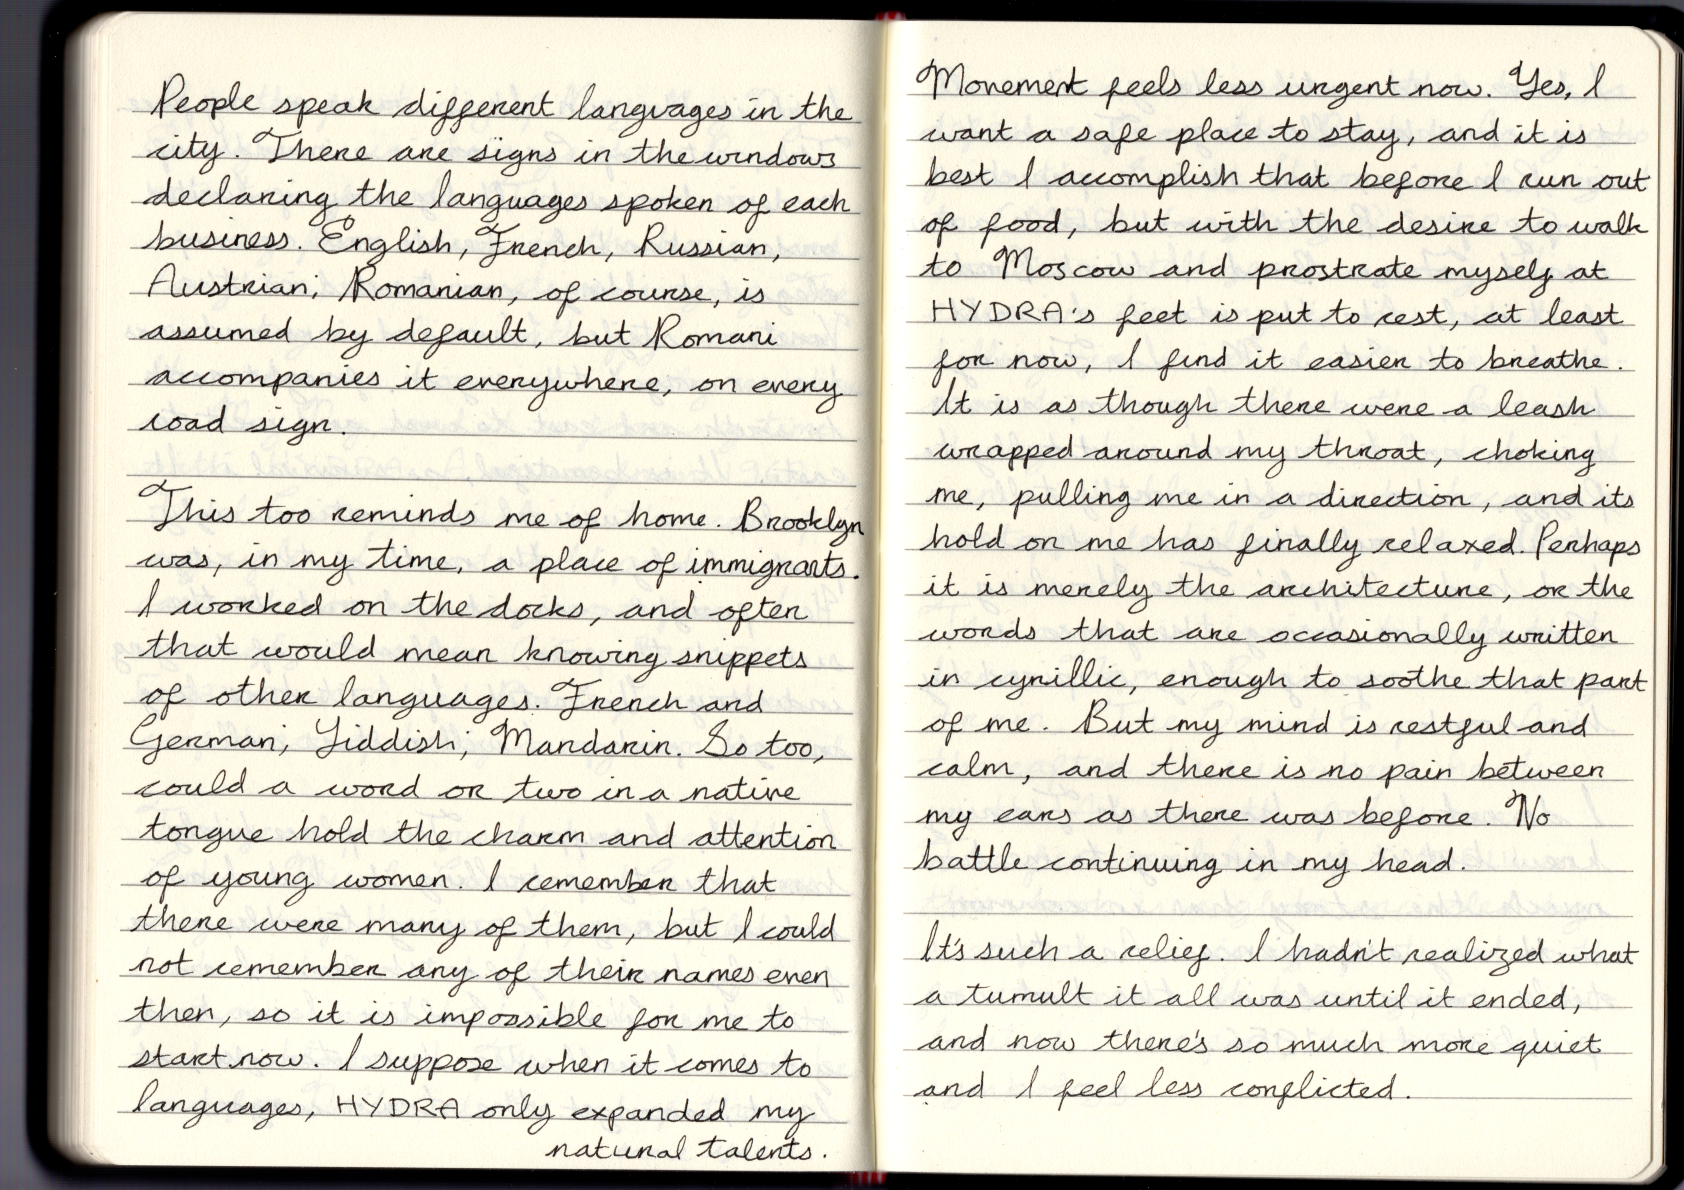 People speak different languages in the
city. There are signs in the windows
declaring the languages spoken of each
business. English, French, Russian,
Austrian; Romanian, of course, is
assumed by default, but Romani
accompanies it everywhere, on every
road sign.
This too reminds me of home. Brooklyn
was, in my time, a place of immigrants.
I worked on the docks, and often
that would mean knowing snippets
of other languages. French and
German; Yiddish; Mandarin. So too,
could a word or two in a native
tongue hold the charm and attention
of young women. I remember that
there were many of them, but I could
not remember any of their names even
then, so it is impossible for me to
start now. I suppose when it comes to
languages, HYDRA only expanded my
natural talents.
Movement feels less urgent now. Yes, I
want a safe place to stay, and it is
best I accomplish that before I run out
of food, but with the desire to walk
to Moscow and prostrate myself at
HYDRA's feet is put to rest, at least
for now, I find it easier to breathe.
It is as though there were a leash
wrapped around my throat, choking
me, pulling me in a direction, and its
hold on me has finally relaxed. Perhaps
it is merely the architecture, or the
words that are occasionally written
in cyrillic, enough to soothe that part
of me. But my mind is restful and
calm, and there is no pain between
my ears as there was before. No
battle continuing in my head.
It's such a relief. I hadn't realized what
a tumult it all was until it ended,
and now there's so much more quiet
and I feel less conflicted.